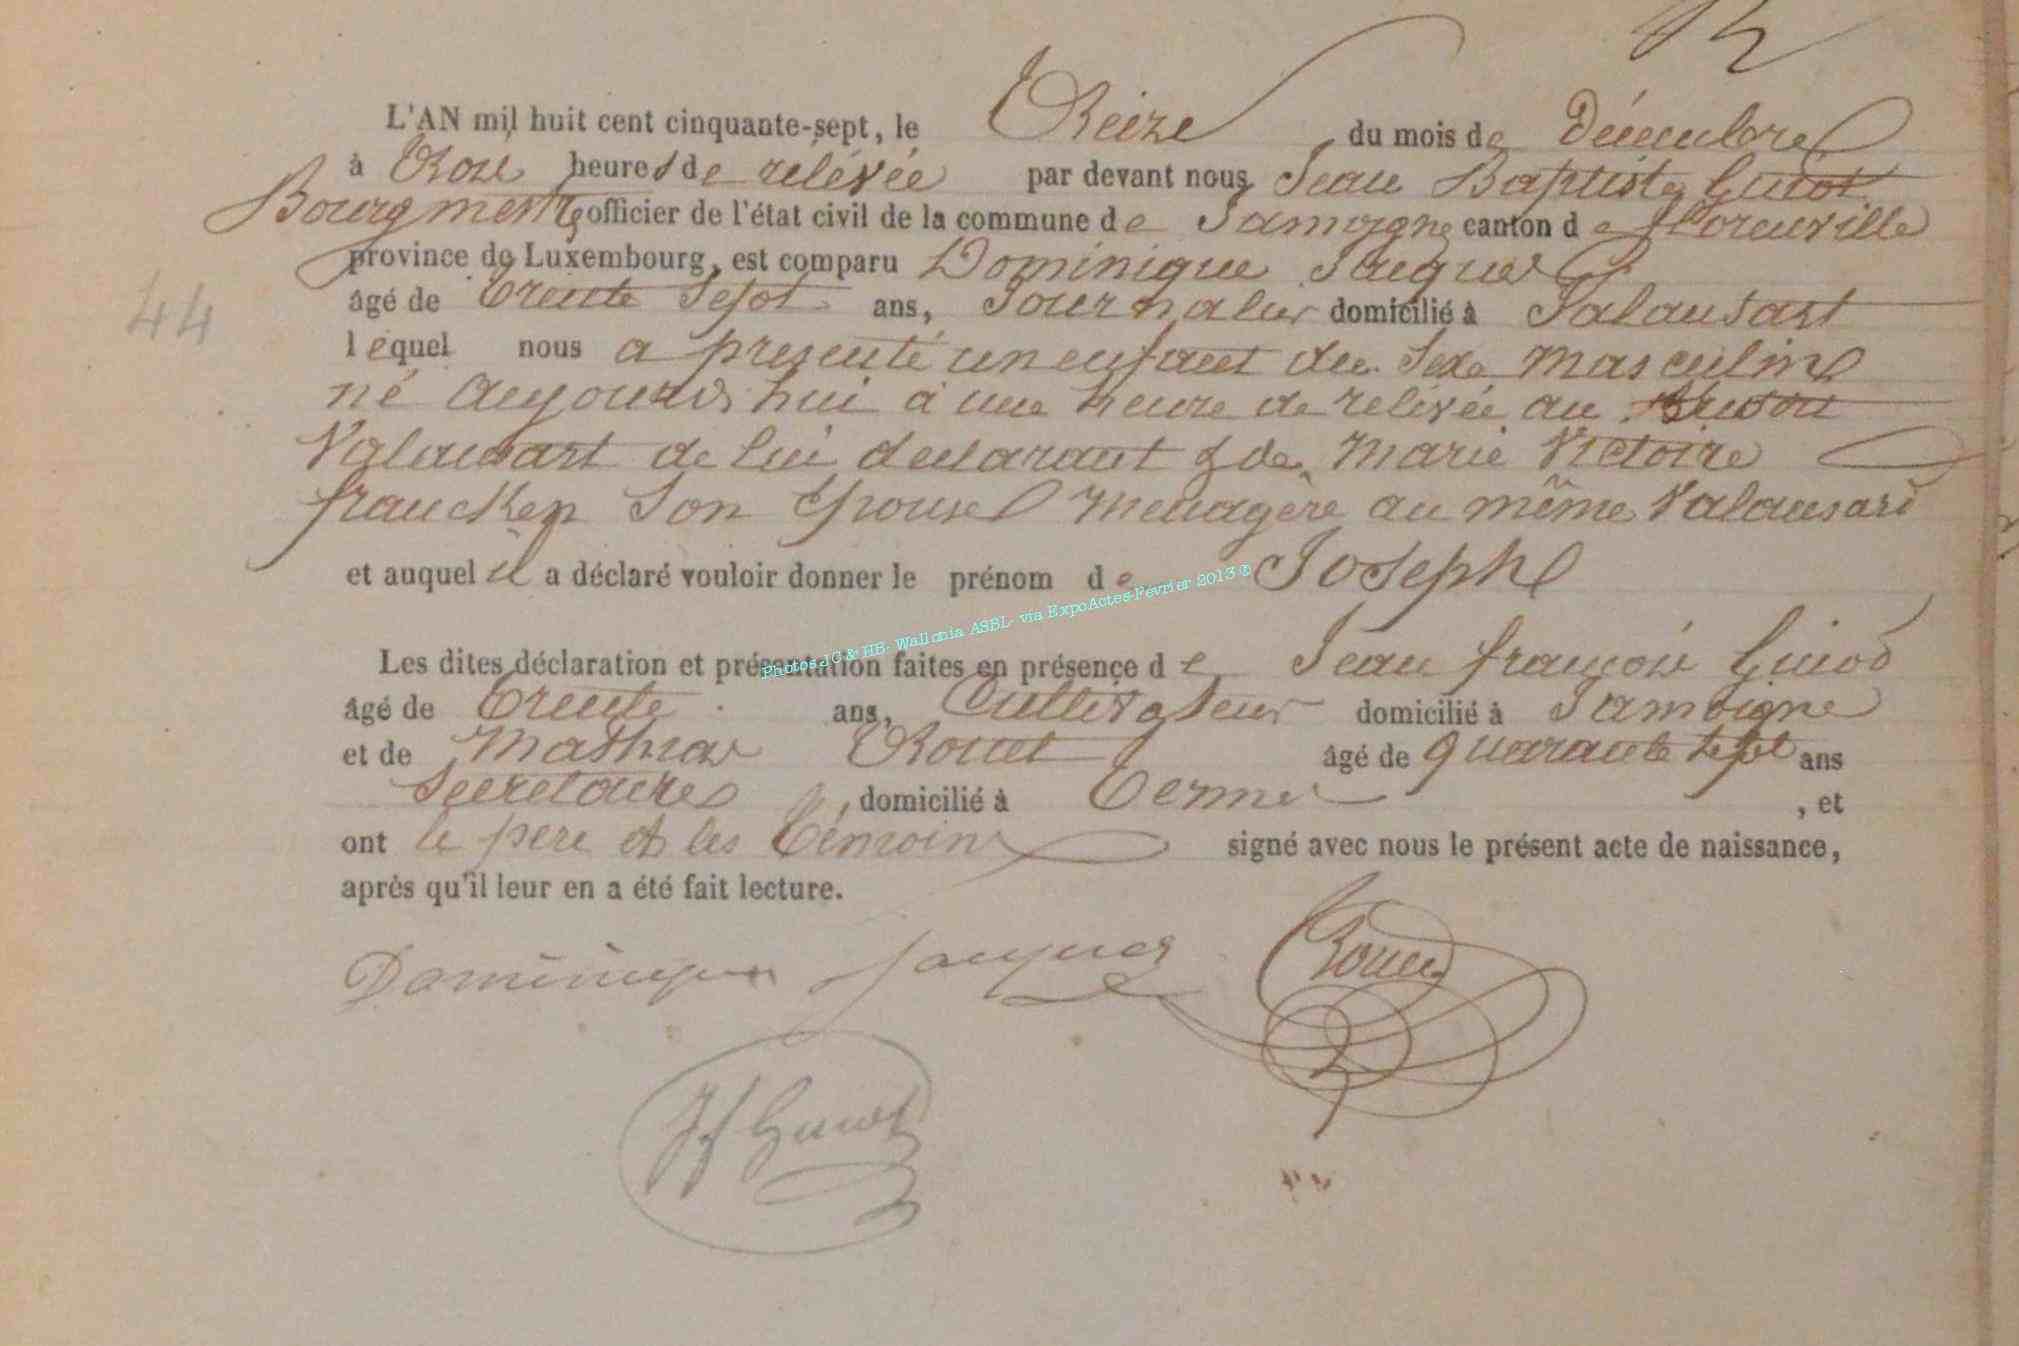 L'AN mil huit cent cinquante-sept, le Treize du mois de Décembre
à Trois heures de rélévée par devant nous Jean Baptiste Guiot
Bourgmestre officier de l'état civil de la commune de Jamoigne canton de Florenville
province de Luxembourg, est comparu Dominique Jacques
âgé de Trente Sept ans, Journalier domicilié à Valansart
lequel nous a presenté un enfant du Sexe Masculin
né aujourd'hui à une heure de relévée au
Valansart de lui déclarant & de Marie Victoire
francken Son Epouse Menagère au même Valansart
et auquel il a déclaré vouloir donner le prénom de Joseph
Les dites déclaration et présentation faites en présence de Jean françois Guiot
âgé de Trente ans, Cultivateur domicilié à Jamoigne
et de Mathias Rouet âgé de quarante sept ans
Secretaire domicilié à Termes, et
ont le père et les Témoins signé avec nous le présent acte de naissance,
après qu'il leur en a été fait lecture.
Dominique Jacques
JfGuiot
44
Photos JC & HB- Wallonia ASBL- via ExpoActes-Février 2013 ©